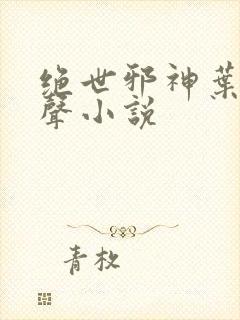 绝世邪神葉
聲小説
青枚